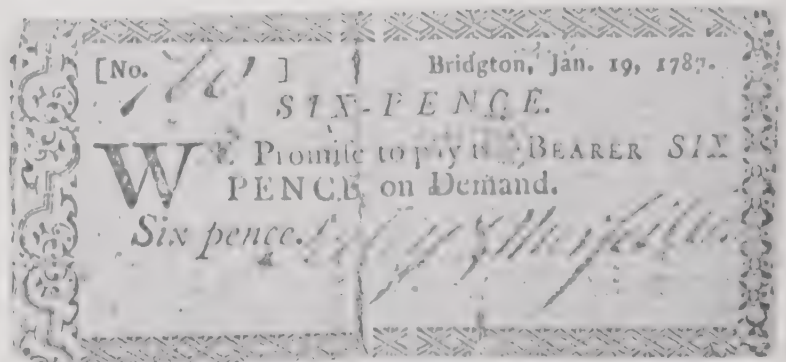 [No. ]
Bridgton, Jan. 19, 1787.
SIX-PENCE.
WE Promise to pay the BEARER SIX
PENCE on Demand.
Six pence.